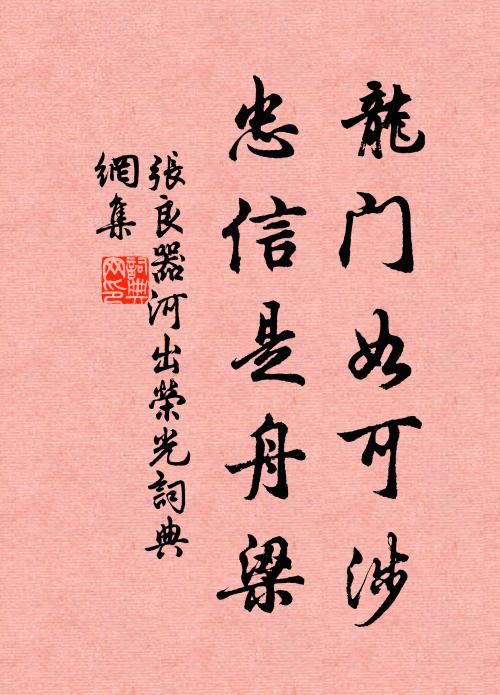 龍门如可涉
忠信是舟梁
張良器河出榮光詞典
網集
詞典
网印